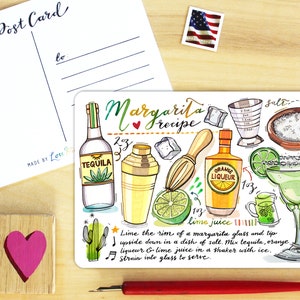 Post Card
to
MADE BY
Margarita
recipe
salt
2oz
TEQUILA
ORANGE
LIQUEUR
1oz
1oz lime juice
Lime the rim of a margarita glass and tip
upside down in a dish of salt. Mix tequila, orange
liqueur & lime juice in a shaker with ice.
Strain into glass to serve.